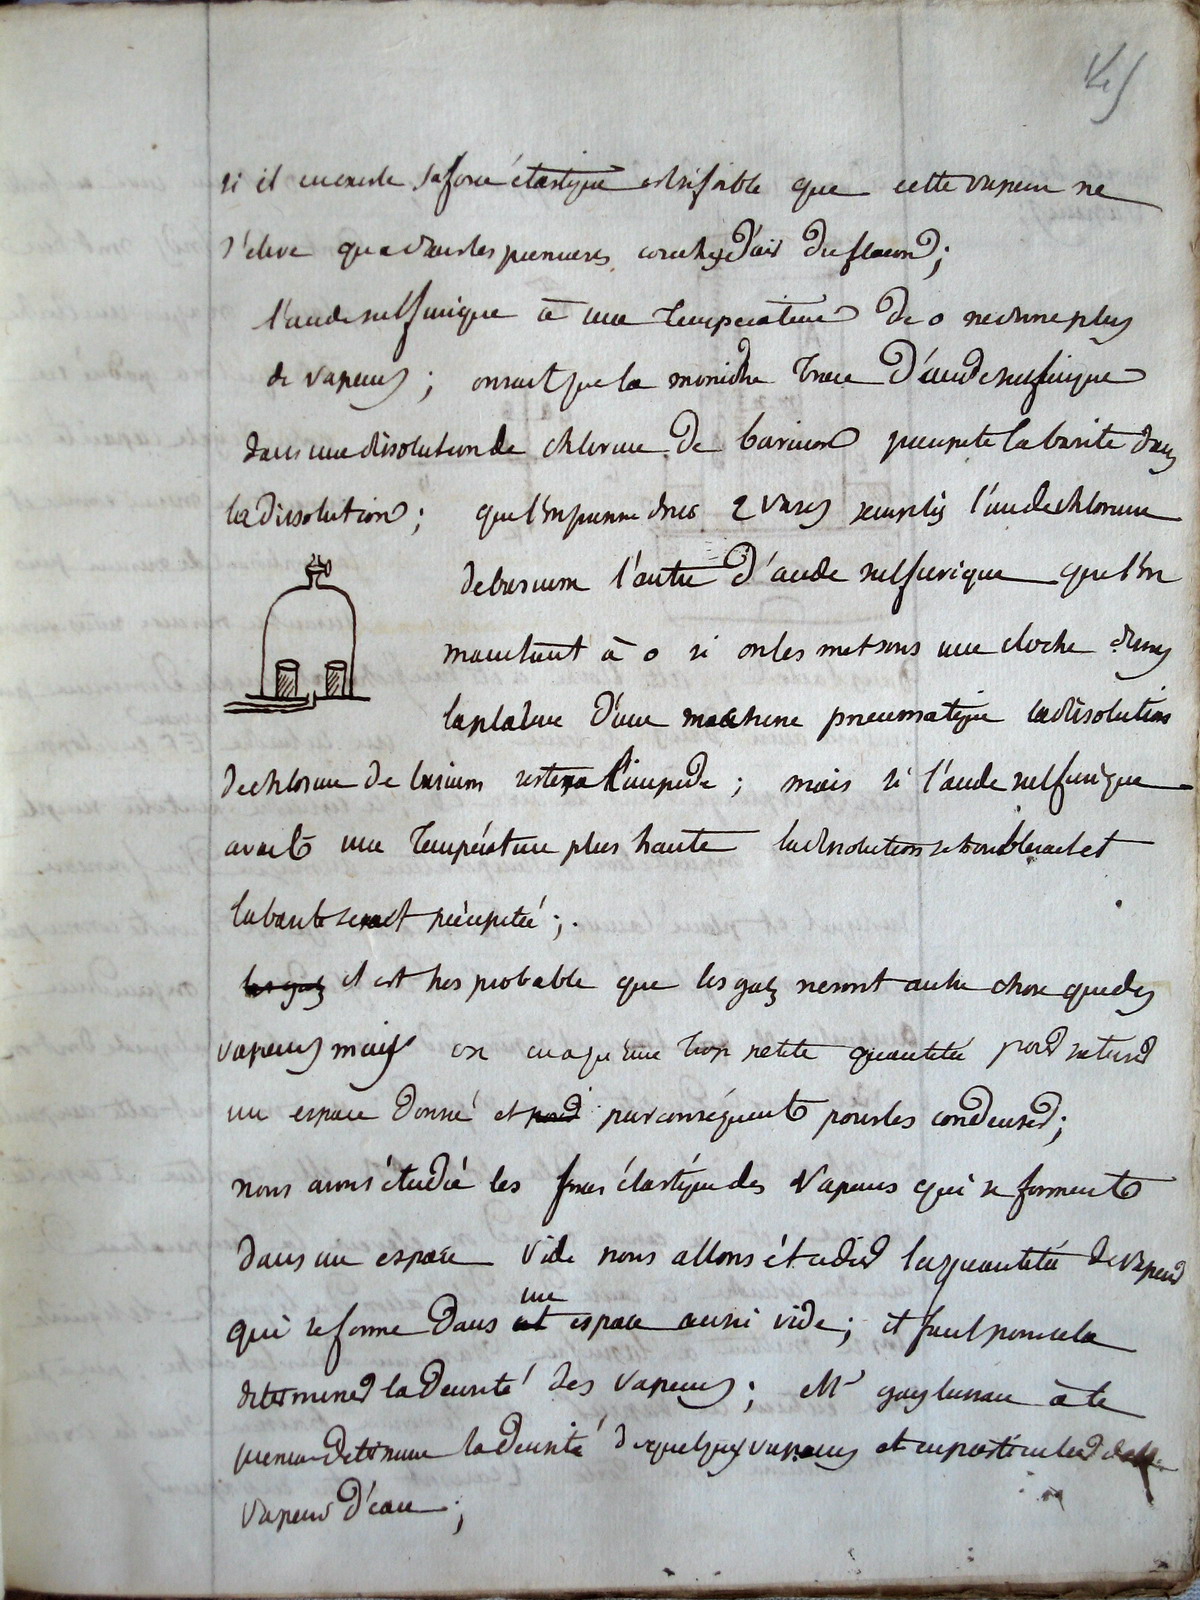 si il en existe sa force élastique est si foible que cette vapeur ne
s'eleve que dans les premieres couches d'air du flacon;
l'acide sulfurique à une temperature de 0 ne donne plus
de vapeurs; on sait que la moindre trace d'acide sulfurique
dans une dissolution de chlorure de barium precipite la barite dans
la dissolution; que l'on prenne donc 2 vases remplis l'un de chlorure
de barium l'autre d'acide sulfurique que l'on
maintient à 0 si on les met sous une cloche dans
la platine d'une machine pneumatique la dissolution
de chlorure de barium restera limpide; mais si l'acide sulfurique
avait une température plus haute la dissolution se troublerait et
la barite serait précipitée;
les gaz il est tres probable que les gaz ne sont autre chose que des
vapeurs mais on en a qu'une trop petite quantitée pour saturer
un espace donné et pour par conséquent pour les condenser;
nous avons étudié les forces élastique des vapeurs qui se forment
dans un espace vide nous allons étudier la quantité de vapeur
qui se forme dans un espace aussi vide; il faut pour cela
déterminer la densité des vapeurs; Mr gay lussac à le
premier determiné la densité de quelques vapeurs et en particulier de la
vapeur d'eau;